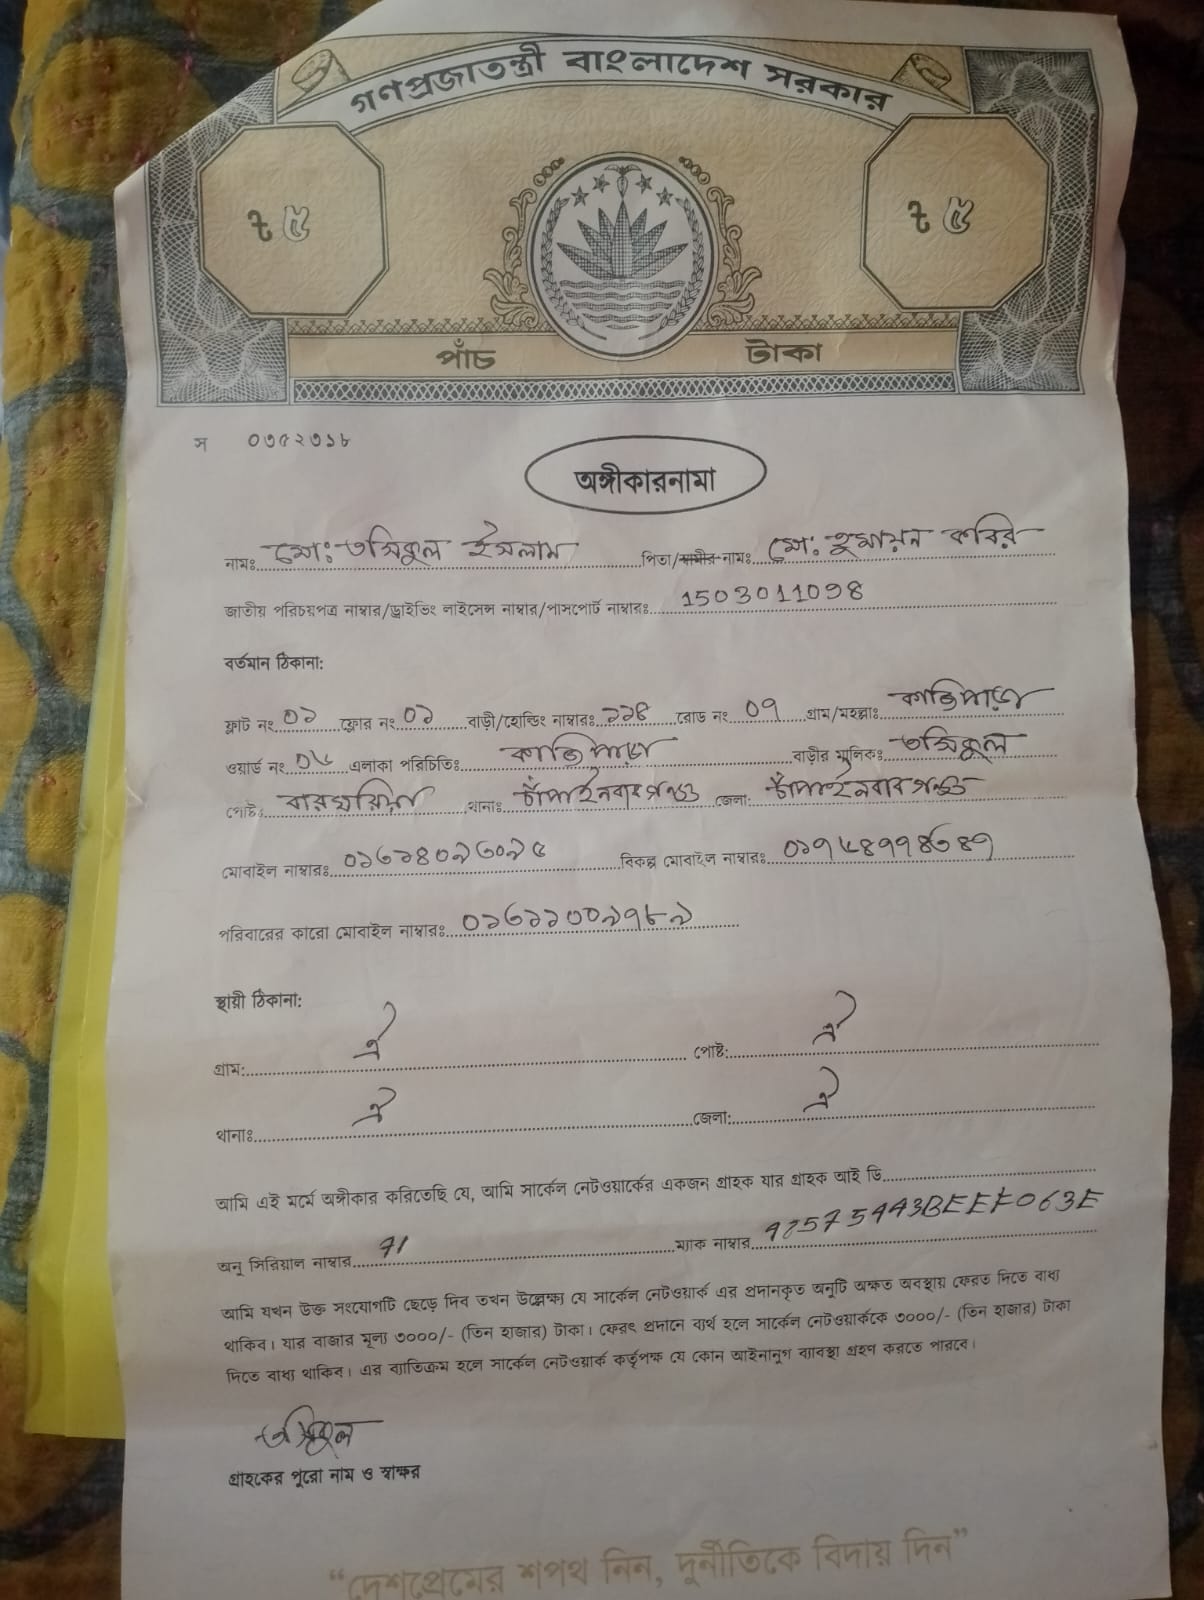 গণপ্রজাতন্ত্রী বাংলাদেশ সরকার
৳ ৫ ৳ ৫
পাঁচ টাকা
স ০৩৫২৩১৮
অঙ্গীকারনামা
নামঃ মোঃ তসিকুল ইসলাম পিতা/স্বামীর নামঃ মোঃ হুমায়ন কবির
জাতীয় পরিচয়পত্র নাম্বার/ড্রাইভিং লাইসেন্স নাম্বার/পাসপোর্ট নাম্বারঃ 1503011098
বর্তমান ঠিকানা:
ফ্লাট নং ০১ ফ্লোর নং ০১ বাড়ী/হোল্ডিং নাম্বারঃ ১১৪ রোড নং ০৭ গ্রাম/মহল্লাঃ কাজিপাড়া
ওয়ার্ড নং ০৬ এলাকা পরিচিতিঃ কাজিপাড়া বাড়ীর মালিকঃ তসিকুল
পোষ্টঃ বারঘরিয়া থানাঃ চাঁপাইনবাবগঞ্জ জেলা: চাঁপাইনবাবগঞ্জ
মোবাইল নাম্বারঃ বিকল্প মোবাইল নাম্বারঃ
পরিবারের কারো মোবাইল নাম্বারঃ
স্থায়ী ঠিকানা:
গ্রাম: ঐ পোষ্ট: ঐ
থানাঃ ঐ জেলা: ঐ
আমি এই মর্মে অঙ্গীকার করিতেছি যে, আমি সার্কেল নেটওয়ার্কের একজন গ্রাহক যার গ্রাহক আই ডি
অনু সিরিয়াল নাম্বার 71 ম্যাক নাম্বার
আমি যখন উক্ত সংযোগটি ছেড়ে দিব তখন উল্লেক্ষ্য যে সার্কেল নেটওয়ার্ক এর প্রদানকৃত অনুটি অক্ষত অবস্থায় ফেরত দিতে বাধ্য
থাকিব। যার বাজার মূল্য ৩০০০/- (তিন হাজার) টাকা। ফেরৎ প্রদানে ব্যর্থ হলে সার্কেল নেটওয়ার্ককে ৩০০০/- (তিন হাজার) টাকা
দিতে বাধ্য থাকিব। এর ব্যাতিক্রম হলে সার্কেল নেটওয়ার্ক কর্তৃপক্ষ যে কোন আইনানুগ ব্যাবস্থা গ্রহণ করতে পারবে।
তসিকুল
গ্রাহকের পুরো নাম ও স্বাক্ষর
“দেশপ্রেমের শপথ নিন, দুর্নীতিকে বিদায় দিন”